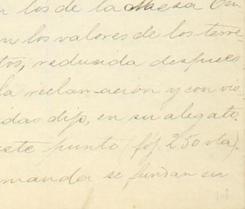 los de la Mesa
los valores de los terre
tos, reducida despues
la reclamación y con
das dijo, en su alegato,
este punto (foj. 250 vta)
manda se fundan en